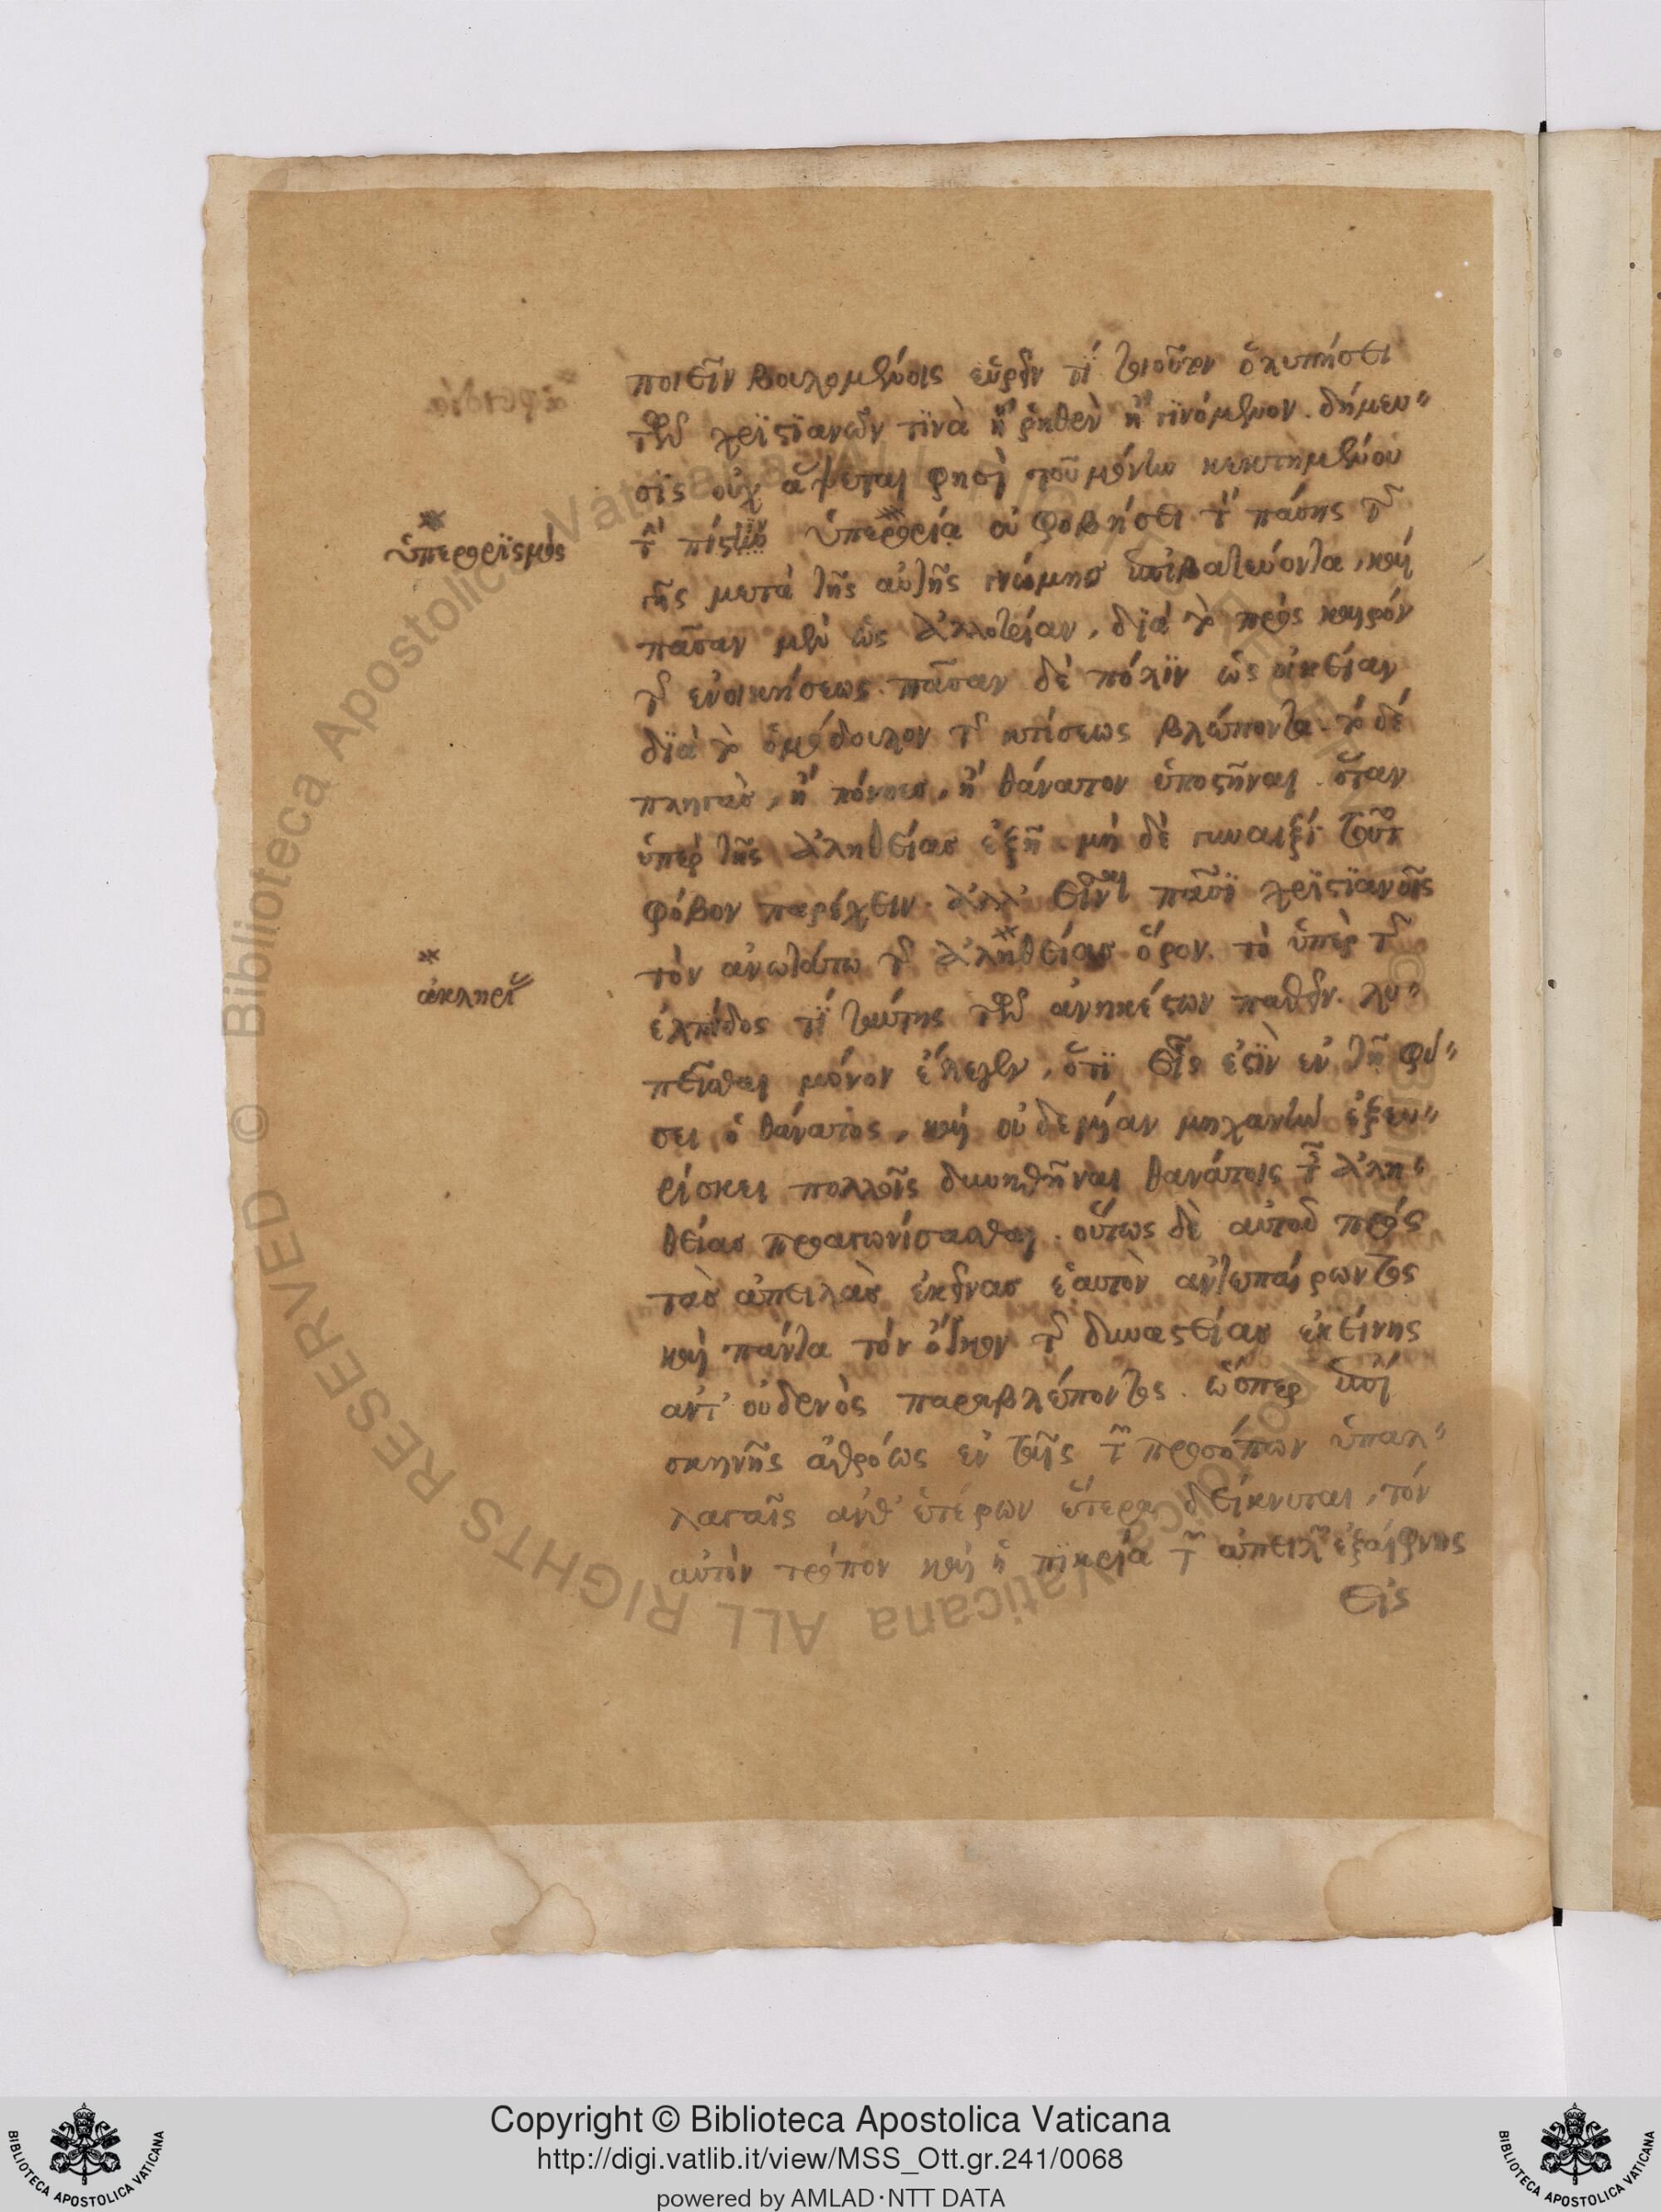 ποιεῖν βουλομένοις εὗρον τί τοιοῦτον ὃ λυπήσει
τῶν χριστιανῶν τινὰ ἢ ῥηθὲν ἢ γινόμενον. δήμευ
σις οὐχ ἅψεται φησὶ τοῦ μόνην κεκτημένου
ὑπερορϊσμὸς
τ πίστιν ὑπερορία οὐ φοβήσει τ πάσης τ
γῆς μετὰ τῆς αὐτῆς γνώμης ἐπιβατεύοντα, καὶ
πᾶσαν μὲν ὡς ἀλλοτρίαν, διὰ τὸ πρὸς καιρόν
τ ἐνοικήσεως. πᾶσαν δὲ πόλϊν ὡς οἰκείαν
δϊὰ τὸ ὁμόδουλον τ κτίσεως βλέποντα. τὸ δὲ
πληγὰς, ἢ πόνους, ἢ θάνατον ὑποστῆναι. ὅταν
ὑπὲρ τῆς ἀληθείας ἐξῆ. μὴ δὲ γυναιξὶ τοῦτ
φόβον παρέχειν. ἀλλ' εἶναι πᾶσϊ χρϊστϊανοῖς
ἀκληρϊ
τὸν ἀνωτάτω τ ἀληθείας ὅρον. τὸ ὑπὲρ τ
ἐλπίδος τϊ ταύτης τῶν ἀνηκέστων παθεῖν. λυ
πεῖσθαι μόνον ἔλεγεν, ὅτϊ εἷς ἐστϊν ἐν τῆ φύ
σει ὁ θάνατος, καὶ οὐδεμίαν μηχανὴν ἐξευ
ρίσκει πολλοῖς δυνηθῆναι θανάτοις τ ἀλη
θείας προαγωνίσασθαι. οὕτως δὲ αὐτοῦ πρὸς
τὰς ἀπειλὰς ἐκείνας ἑαυτὸν ἀντεπαίροντος
καὶ πάντα τὸν ὄγκον τ δυναστείας ἐκείνης
ἀντ' οὐδενὸς παραβλέποντος. ὥσπερ ἐπὶ
σκηνῆς ἀθρόως ἐν ταῖς τ προσώπων ὑπαλ
λαγαῖς ἀνθ' ἑτέρων ἕτερα δείκνυται, τὸν
αὐτὸν τρόπον καὶ ἡ πϊκρία τ ἀπειλ ἐξαίφνης
εἰς
Copyright © Biblioteca Apostolica Vaticana
http://digi.vatlib.it/view/MSS_Ott.gr.241/0068
powered by AMLAD·NTT DATA
BIBLIOTECA APOSTOLICA VATICANA
BIBLIOTECA APOSTOLICA VATICANA
© Biblioteca Apostolica Vaticana ALL RIGHTS RESERVED